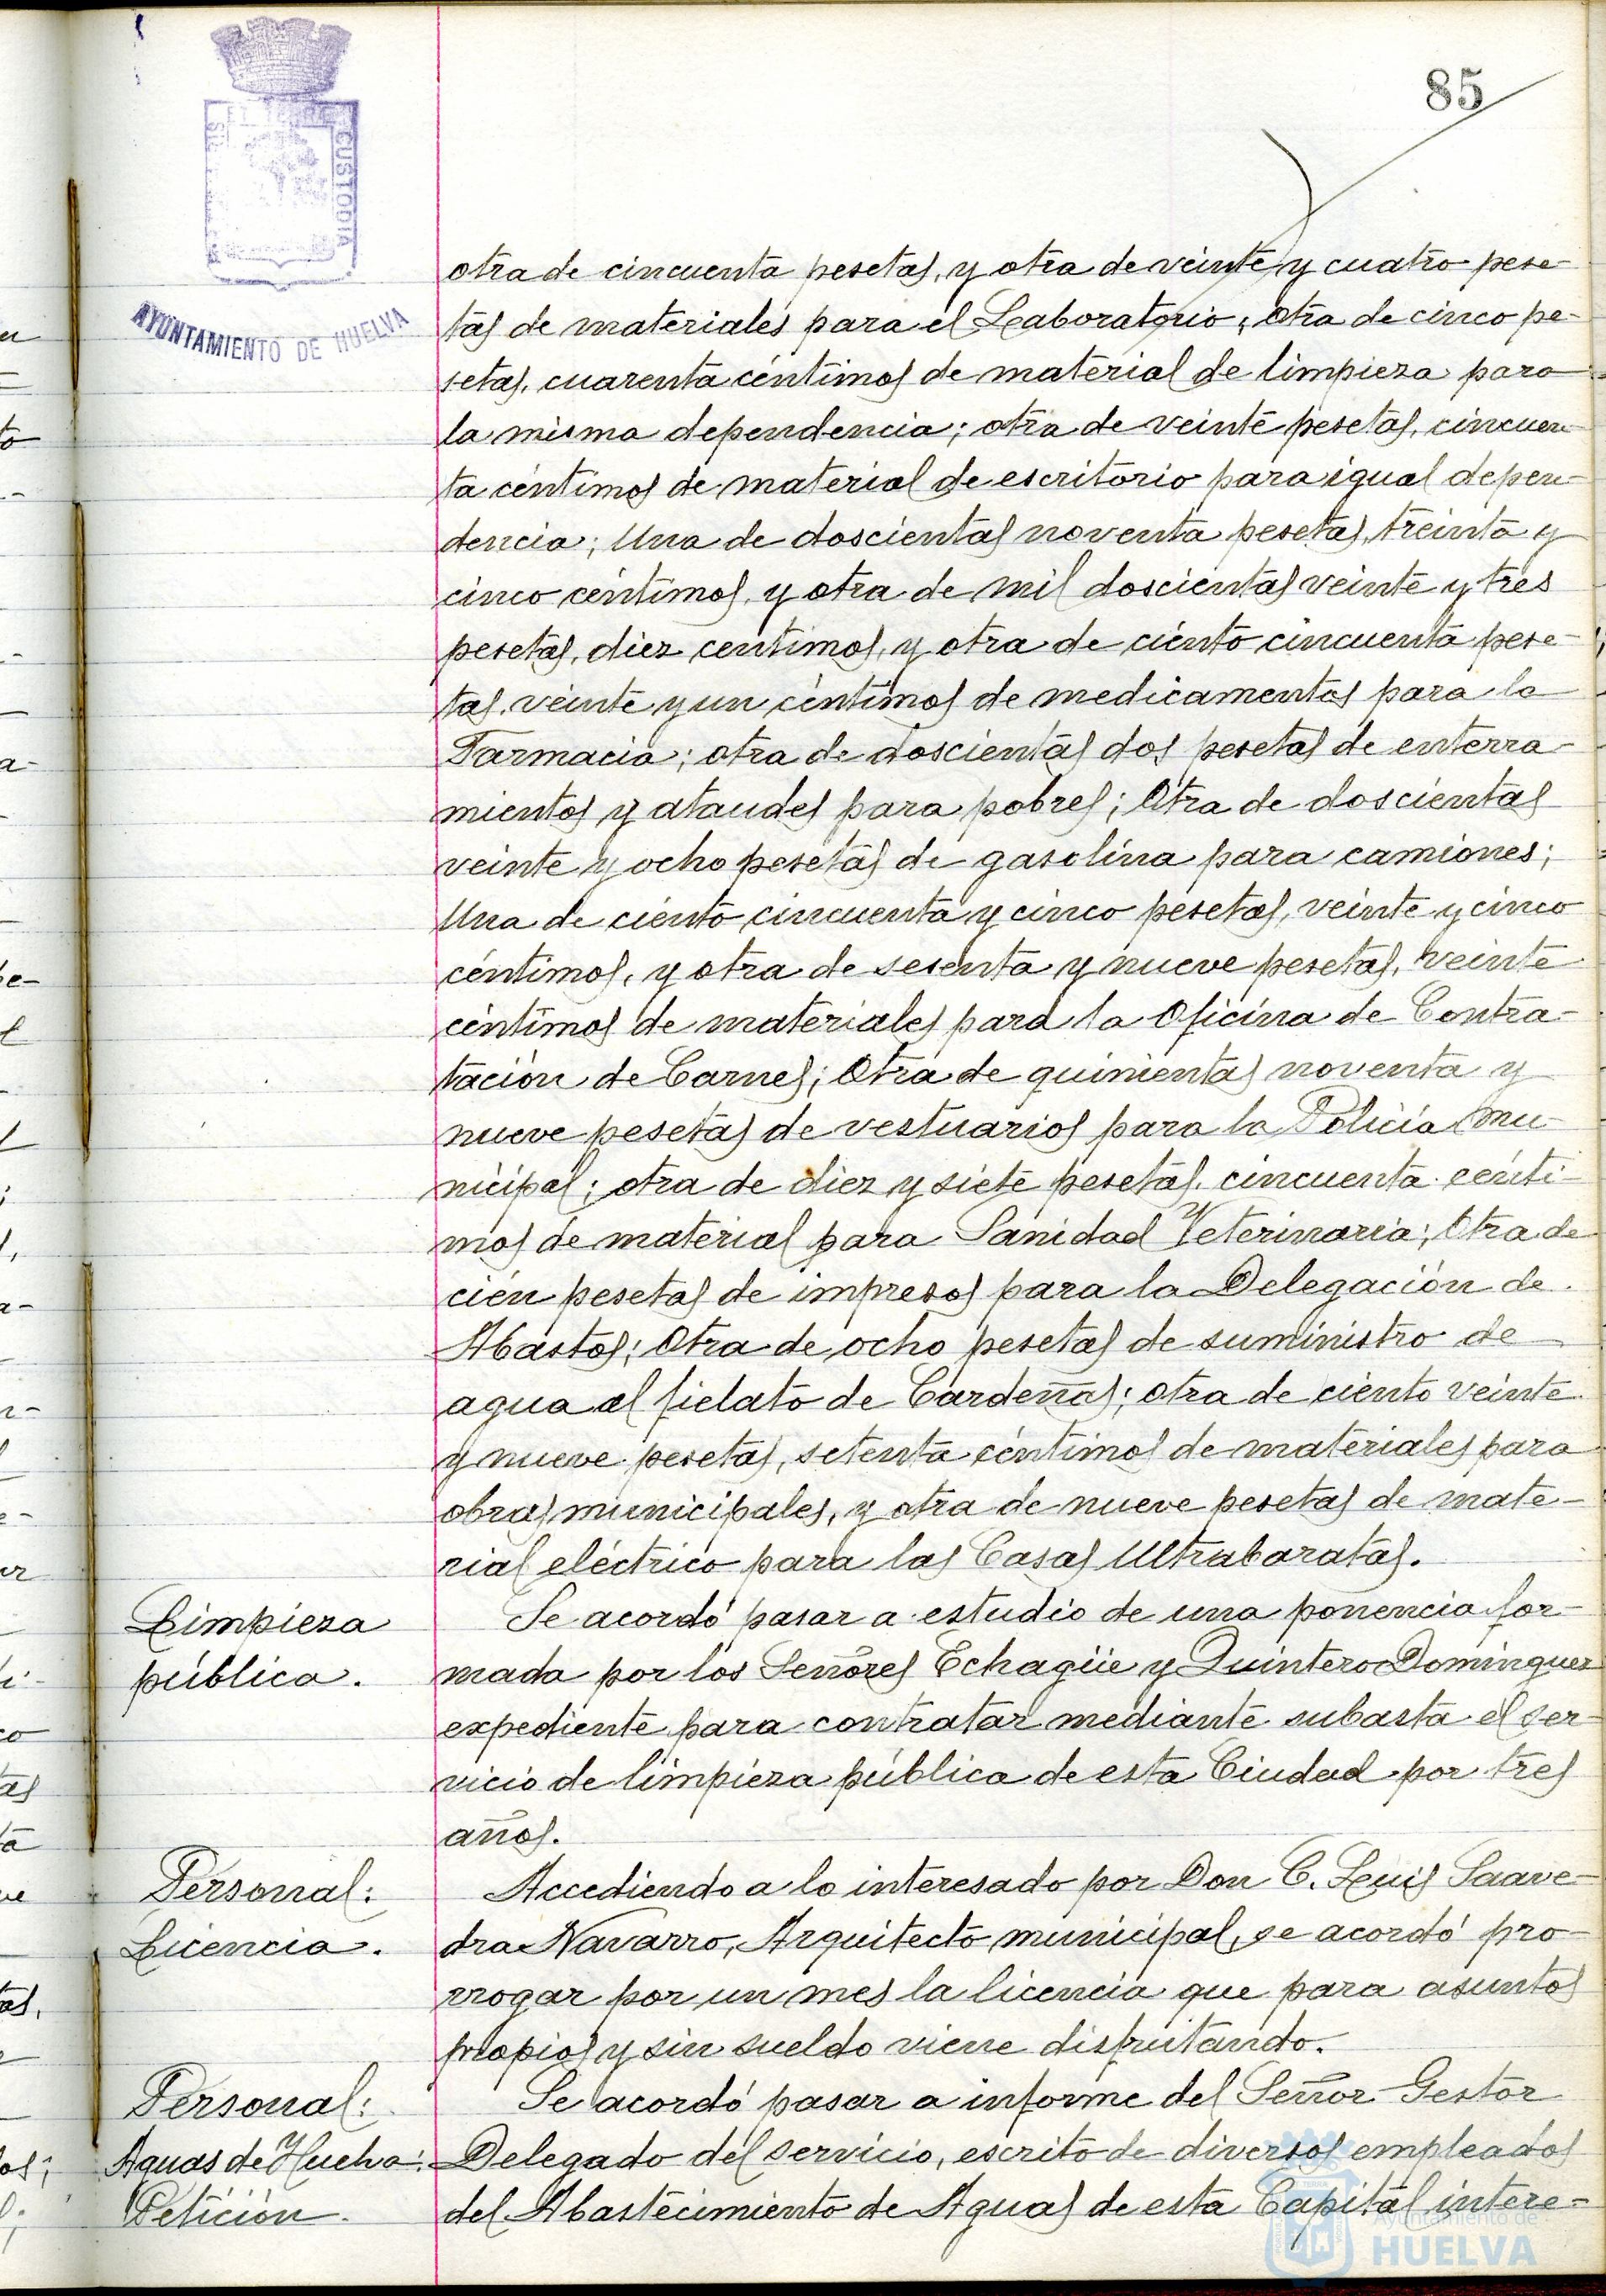 85
AYUNTAMIENTO DE HUELVA
CUSTODIA
otra de cincuenta pesetas, y otra de veinte y cuatro pese-
tas de materiales para el Laboratorio; otra de cinco pe-
setas, cuarenta céntimos de material de limpieza para
la misma dependencia; otra de veinte pesetas, cincuen-
ta céntimos de material de escritorio para igual depen-
dencia; Una de doscientas noventa pesetas, treinta y
cinco céntimos, y otra de mil doscientas veinte y tres
pesetas, diez centimos, y otra de ciento cincuenta pese-
tas, veinte y un céntimos de medicamentos para la
Farmacia; otra de doscientas dos pesetas de enterra-
mientos y ataudes para pobres; Otra de doscientas
veinte y ocho pesetas de gasolina para camiones;
Una de ciento cincuenta y cinco pesetas, veinte y cinco
céntimos, y otra de sesenta y nueve pesetas, veinte
céntimos de materiales para la Oficina de Contra-
tación de Carnes; Otra de quinientas noventa y
nueve pesetas de vestuarios para la Policía mu-
nicipal; otra de diez y siete pesetas, cincuenta cénti-
mos de material para Sanidad Veterinaria; Otra de
cien pesetas de impresos para la Delegación de
Abastos; Otra de ocho pesetas de suministro de
agua al fielato de Cardeñas; otra de ciento veinte
y nueve pesetas, setenta céntimos de materiales para
obras municipales, y otra de nueve pesetas de mate-
rial eléctrico para las Casas Ultrabaratas.
Limpieza
pública.
Se acordó pasar a estudio de una ponencia for-
mada por los Señores Echagüe y Quintero Dominguez
expediente para contratar mediante subasta el ser-
vicio de limpieza pública de esta Ciudad por tres
años.
Personal:
Licencia.
Accediendo a lo interesado por Don C. Luis Saave-
dra Navarro, Arquitecto municipal, se acordó pro-
rrogar por un mes la licencia que para asuntos
propios y sin sueldo viene disfrutando.
Personal:
Aguas de Huelva:
Petición.
Se acordó pasar a informe del Señor Gestor
Delegado del servicio, escrito de diversos empleados
del Abastecimiento de Aguas de esta Capital intere-
Ayuntamiento de
HUELVA